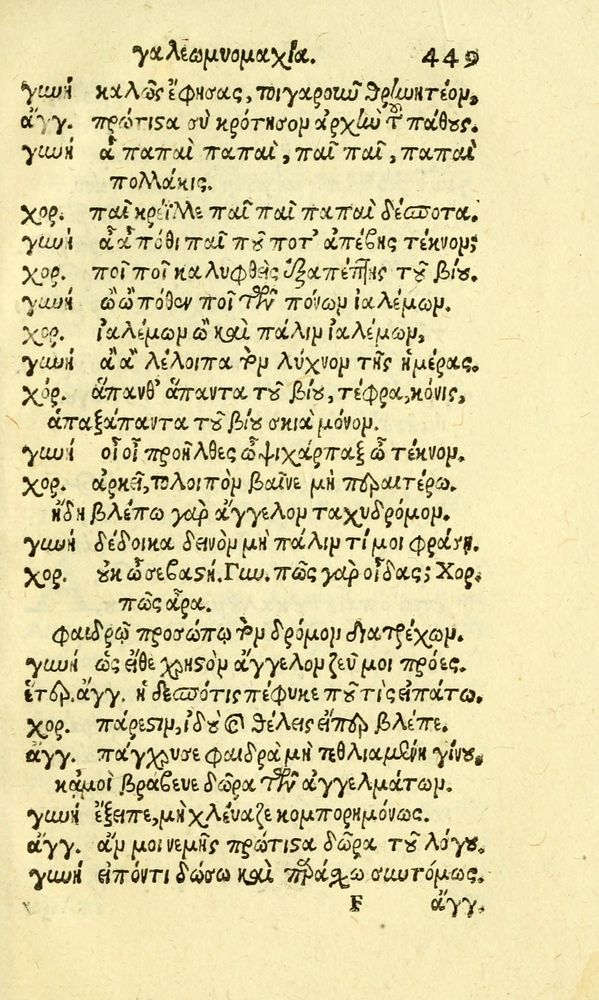 γαλεωμυομαχία. 449
γυνή καλῶς ἔφησας, τοιγαροῦν θρηνητέον.
ἄγγ. πρώτιστα σὺ κρότησον ἀρχὴν τοῦ πάθους.
γυνή ἆ παπαὶ παπαὶ, παῖ παῖ, παπαὶ
πολλάκις.
χορ. παῖ κρεῖλλε παῖ παῖ παπαὶ δέσποτα.
γυνή ἆ ἆ πόθι παῖ ποῦ ποτ' ἀπέβης τέκνον;
χορ. ποῖ ποῖ καλυφθεὶς ἐξαπέπτης τοῦ βίου.
γυνή ὢ ὢ πόθεν ποῖ τῶν πόνων ἰαλέμων.
χορ. ἰαλέμων ὢ καὶ πάλιν ἰαλέμων,
γυνή ἃ ἃ λέλοιπα τὸν λύχνον τῆς ἡμέρας.
χόρ. ἅπανθ' ἅπαντα τοῦ βίου, τέφρα, κόνις,
ἁπαξάπαντα τοῦ βίου σκιὰ μόνον.
γυνή οἶ οἶ προῆλθες ὦ ψιχάρπαξ ὦ τέκνον.
χορ. ἀρκεῖ, τολοιπὸν βαῖνε μὴ πουραιτέρω.
ἤδη βλέπω γὰρ ἄγγελον ταχυδρόμον.
γυνή δέδοικα δεινὸν μὴ πάλιν τί μοι φράση.
χορ. οὐκ ὦ σεβαστή. Γυν. πῶς γὰρ οἶδας; Χορ.
πῶς ἄρα.
φαιδρῷ προσώπῳ τὸν δρόμον διατρέχων.
γυνή ὡς εἴθε χρηστὸν ἄγγελον ζεῦ μοι πρόες.
ἕτερ. ἄγγ. ἡ δεσπότις πέφυκε ποῦ τὶς εἰπάτω.
χορ. πάρεστιν, ἰδοὺ θέλεις εἴπερ βλέπε.
ἄγγ. πάγχρυσε φαιδρὰ μὴ τεθλιμμένη γίνου.
κᾀμοὶ βράβευε δῶρα τῶν ἀγγελμάτων.
γυνή ἔξειπε, μὴ χλέυαζε κομπορημόνως.
ἄγγ. ἄν μοι νέμης πρώτιστα δῶρα τοῦ λόγου.
γυνή εἰπόντι δώσω καὶ παράσχω συντόμως.
F ἄγγ.